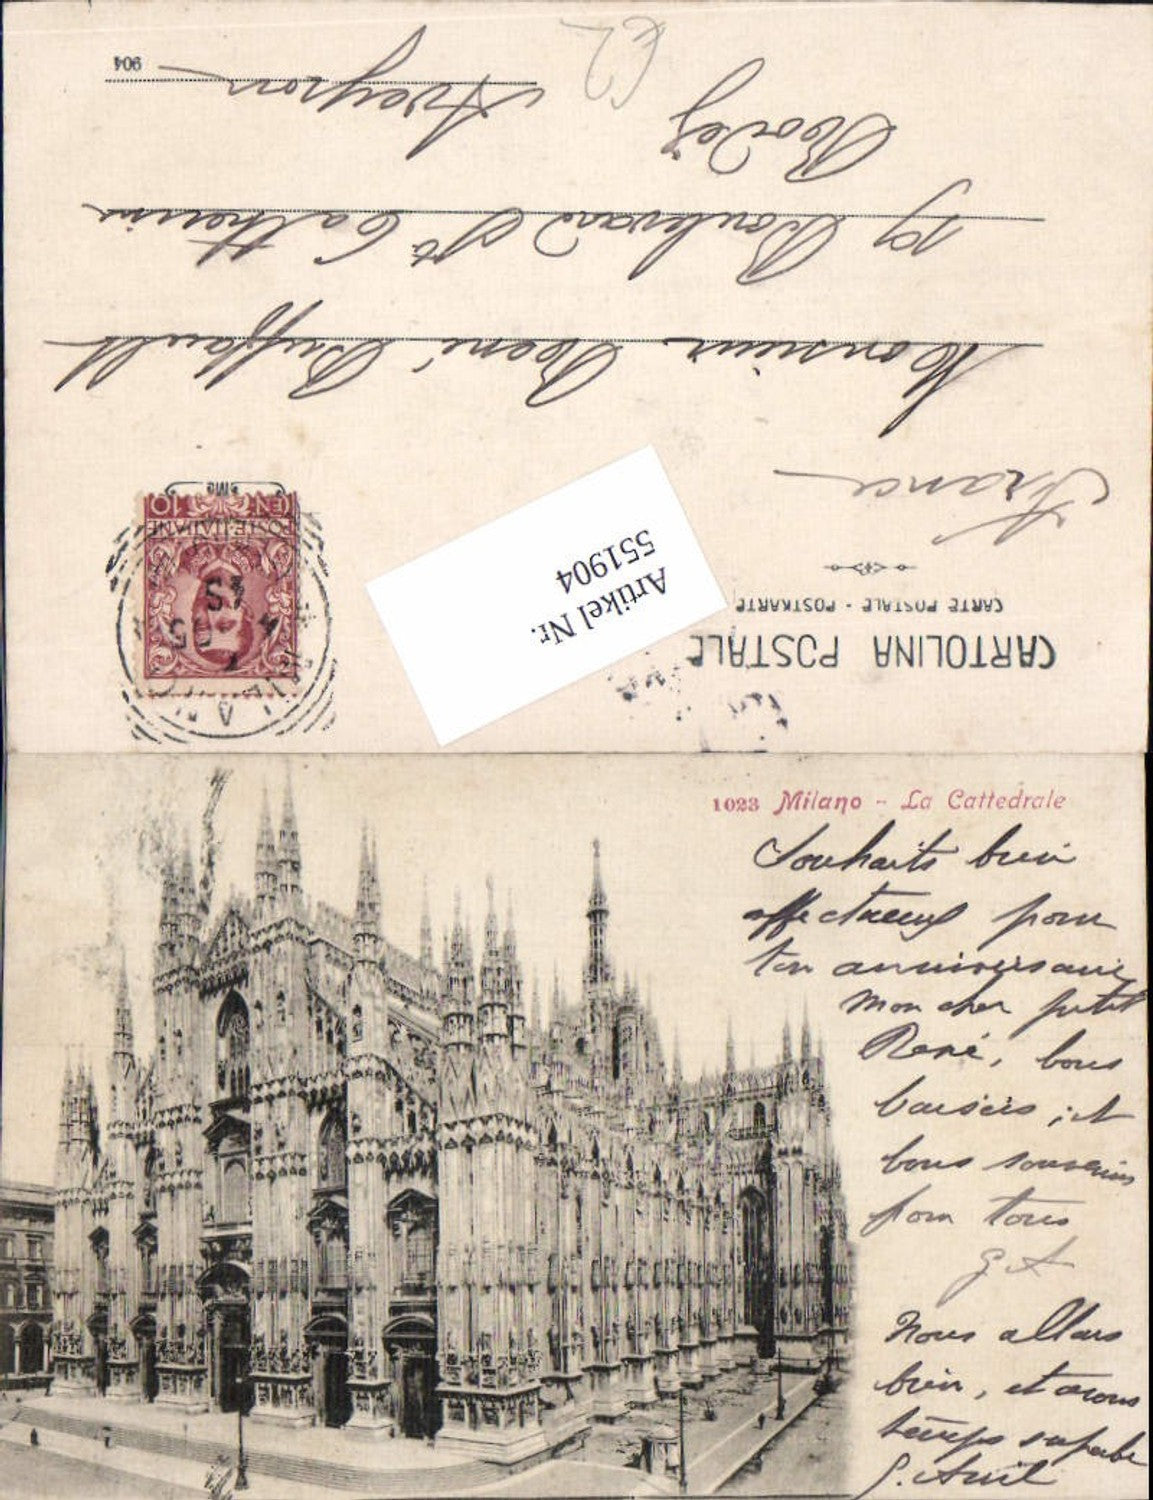 CARTOLINA POSTALE
CARTE POSTALE - POSTKARTE
France
Monsieur René Buffault
19 Boulevard Ste Catherine
Rodez
Aveyron
904
POSTE ITALIANE
CEN. 10
MILANO
Artikel Nr.
551904
1023 Milano - La Cattedrale
Souhaits bien
affectueux pour
ton anniversaire
mon cher petit
René, bons
baisers, et
bons souvenirs
pour tous
G A
Nous allons
bien, et avons
temps superbe